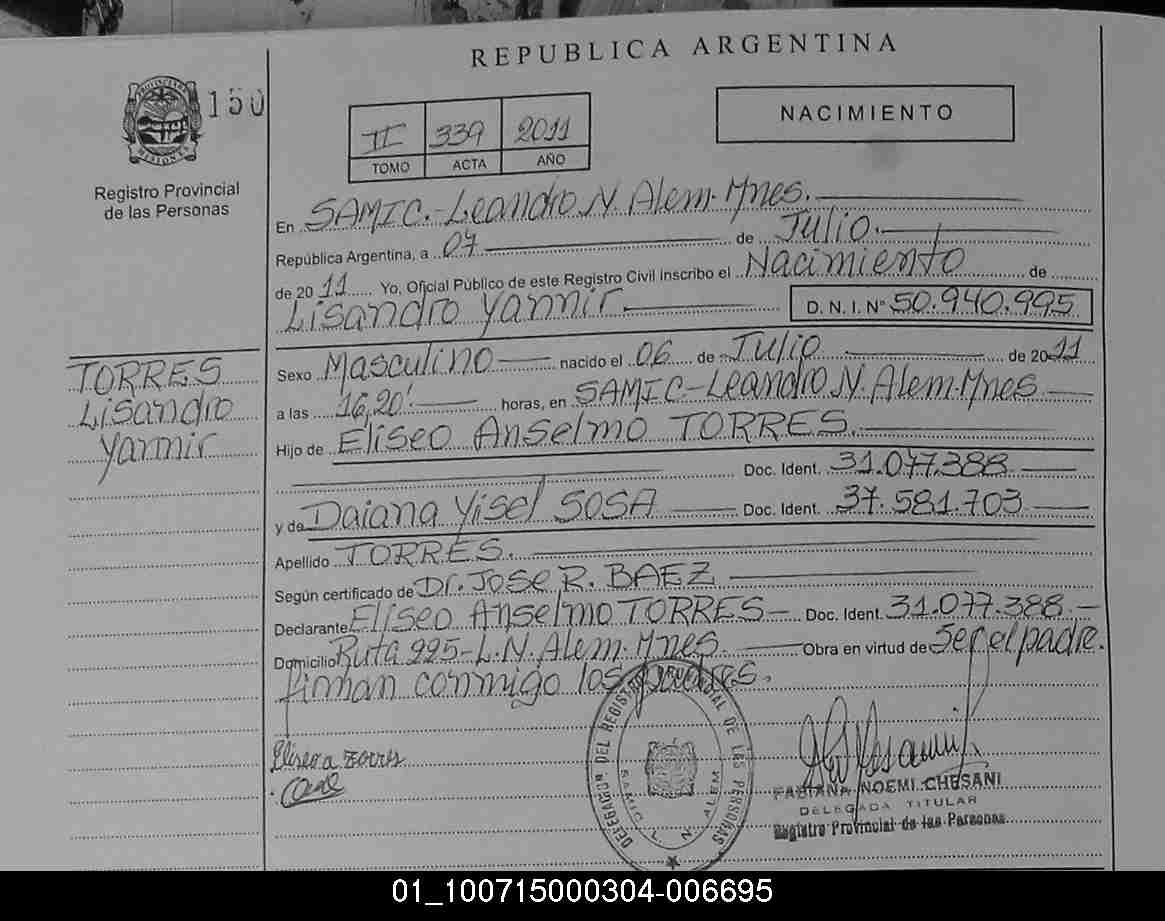 REPUBLICA ARGENTINA
150
NACIMIENTO
II 339 2011
TOMO ACTA AÑO
Registro Provincial
de las Personas
En SAMIC.-Leandro N. Alem-Mnes.
República Argentina, a 07 de Julio.
de 2011 Yo, Oficial Público de este Registro Civil inscribo el Nacimiento de
Lisandro Yanmir D. N. I. N° 50.940.995
TORRES
Lisandro
Yanmir
Sexo Masculino nacido el 06 de Julio de 2011
a las 16,20' horas, en SAMIC-Leandro N. Alem-Mnes
Hijo de Eliseo Anselmo TORRES.
Doc. Ident. 31.077.388
y de Daiana Yisel SOSA Doc. Ident. 37.581.703
Apellido TORRES.
Según certificado de Dr. JOSE R. BAEZ
Declarante Eliseo Anselmo TORRES Doc. Ident. 31.077.388.
Domicilio Ruta 225-L.N. Alem-Mnes. Obra en virtud de Ser el padre.
firman conmigo los padres.
Eliseo a Torres
DELEGACION DEL REGISTRO PROVINCIAL DE LAS PERSONAS
SAMIC L. N. ALEM
FABIANA NOEMI CHESANI
DELEGADA TITULAR
Registro Provincial de las Personas
01_100715000304-006695